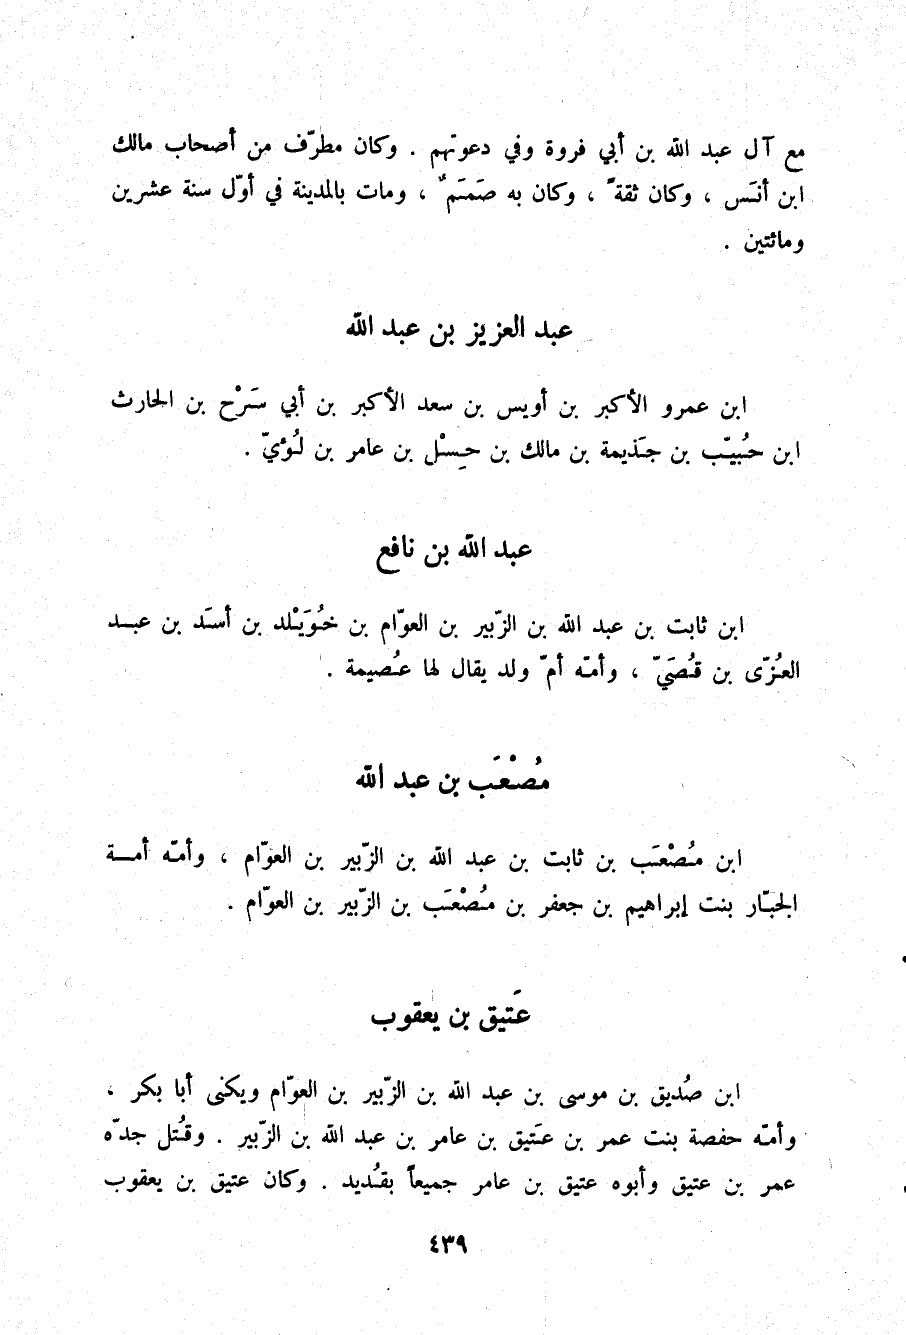 مع آل عبد الله بن أبي فروة وفي دعوتهم . وكان مطرّف من أصحاب مالك
ابن أنَس ، وكان ثقةً ، وكان به صَمَمٌ ، ومات بالمدينة في أوّل سنة عشرين
ومائتين .
عبد العزيز بن عبد الله
ابن عمرو الأكبر بن أويس بن سعد الأكبر بن أبي سَرْح بن الحارث
ابن حُبيّب بن جَذيمة بن مالك بن حِسْل بن عامر بن لُؤيّ .
عبد الله بن نافع
ابن ثابت بن عبد الله بن الزّبير بن العوّام بن خُوَيْلد بن أسَد بن عبد
العُزّى بن قُصَيّ ، وأمّه أمّ ولد يقال لها عُصيمة .
مُصْعَب بن عبد الله
ابن مُصْعَب بن ثابت بن عبد الله بن الزّبير بن العوّام ، وأمّه أمة
الجبّار بنت إبراهيم بن جعفر بن مُصْعَب بن الزّبير بن العوّام .
عَتيق بن يعقوب
ابن صُديق بن موسى بن عبد الله بن الزّبير بن العوّام ويكنى أبا بكر ،
وأمّه حفصة بنت عمر بن عَتيق بن عامر بن عبد الله بن الزّبير . وقُتل جدّه
عمر بن عتيق وأبوه عتيق بن عامر جميعاً بقُديد . وكان عتيق بن يعقوب
٤٣٩